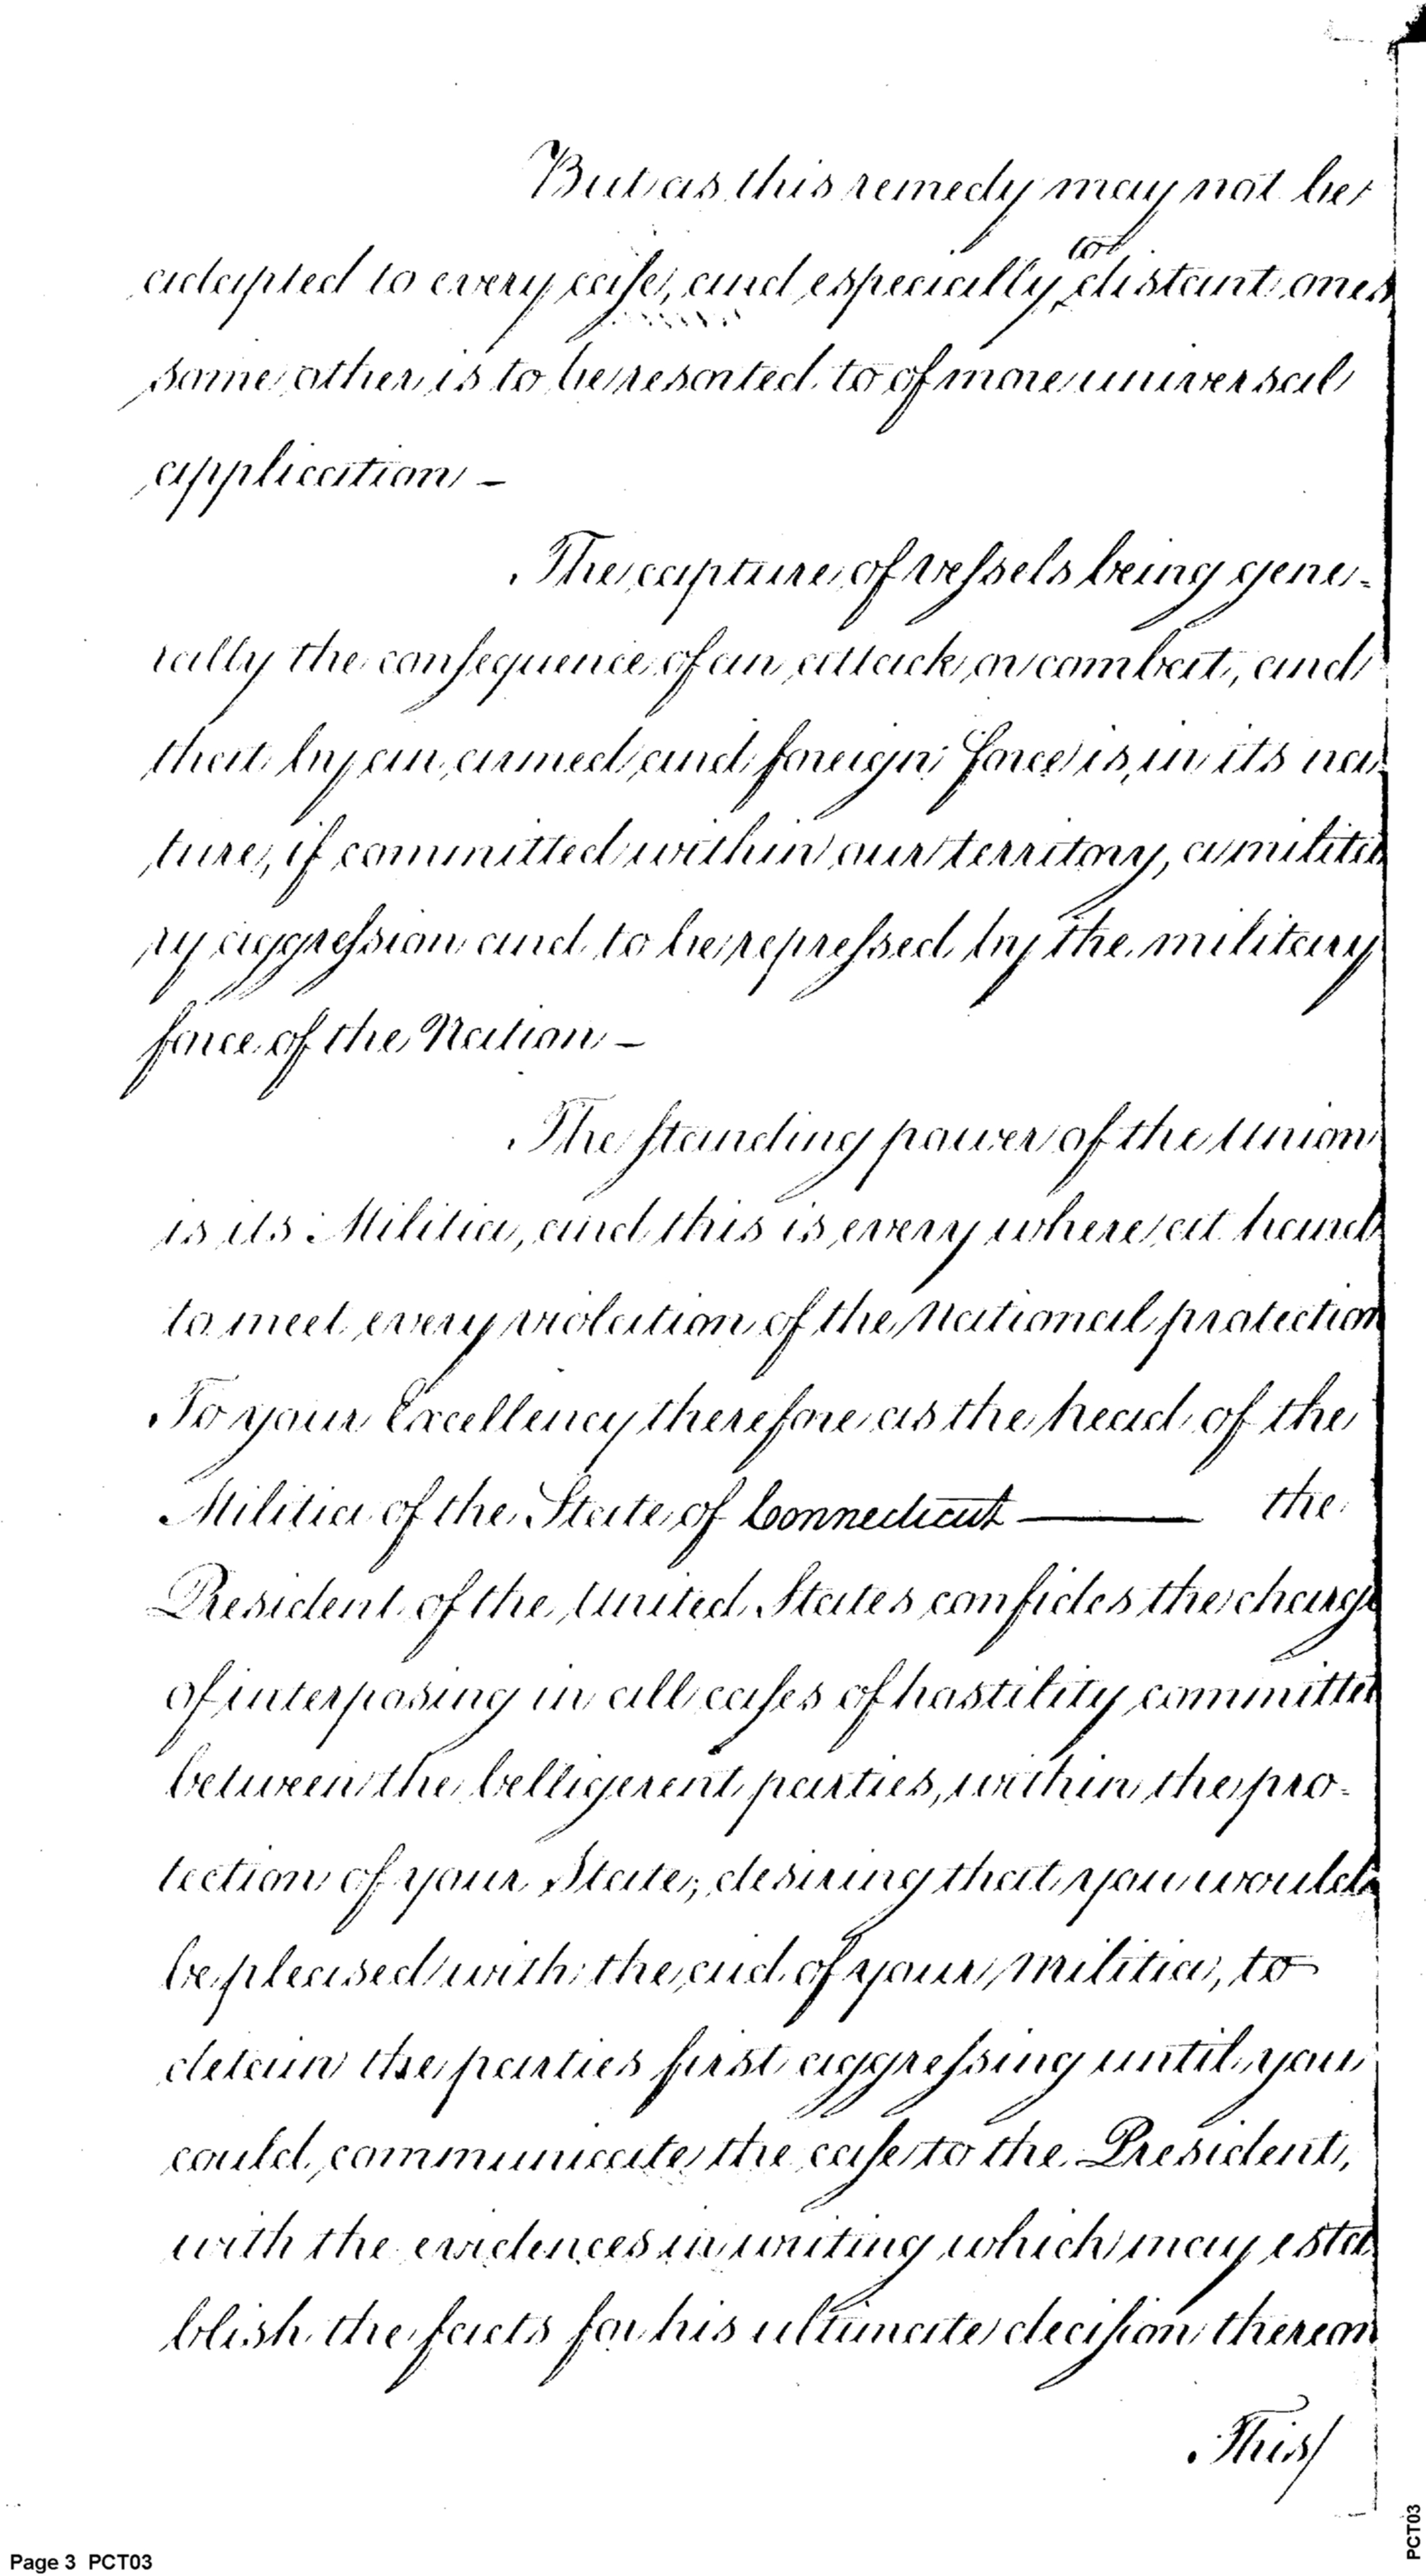 But as this remedy may not be
adapted to every case, and especially to distant ones
some other is to be resorted to of more universal
application —
The capture of vessels being gene-
rally the consequence of an attack or combat, and
that by an armed and foreign force is, in its na
ture, if committed within our territory, a milita
ry aggression and to be repressed by the military
force of the Nation —
The standing power of the Union
is its Militia, and this is every where at hand
to meet every violation of the National protection
To your Excellency therefore as the head of the
Militia of the State of Connecticut — the
President of the United States confides the charge
of interposing in all cases of hostility committed
between the belligerent parties, within the pro-
tection of your State; desiring that you would
be pleased with the aid of your Militia, to
detain the parties first aggressing until you
could communicate the case to the President,
with the evidences in writing which may esta
blish the facts for his ultimate decision thereon
This/
Page 3 PCT03
PCT03